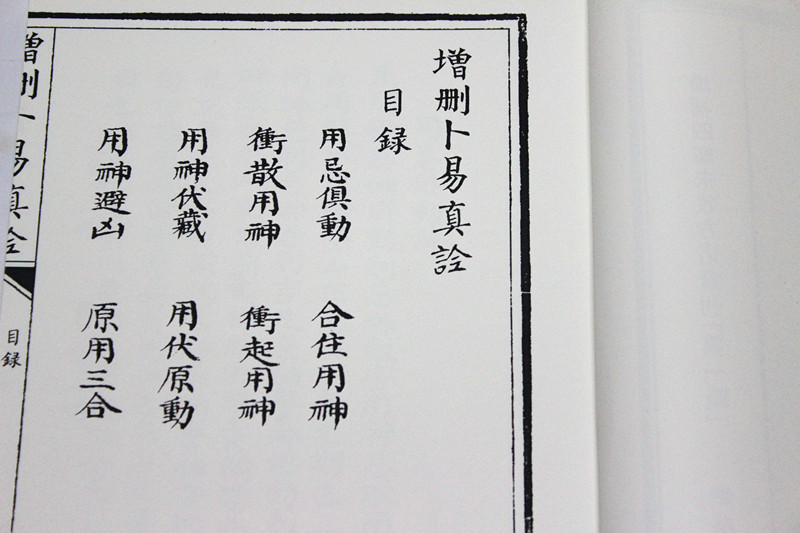 增刪卜易真詮
目錄
用忌俱動
合住用神
衝散用神
衝起用神
用神伏藏
用伏原動
用神避凶
原用三合
增刪卜易真詮
目錄